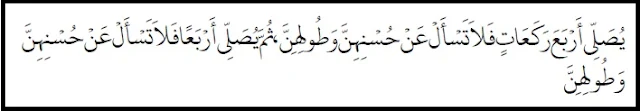 يُصَلِّى أَرْبَعَ رَكَعَاتٍ فَلَا تَسْأَلْ عَنْ حُسْنِهِنَّ وَطُولِهِنَّ، ثُمَّ يُصَلِّى أَرْبَعًا فَلَا تَسْأَلْ عَنْ حُسْنِهِنَّ
وَطُولِهِنَّ